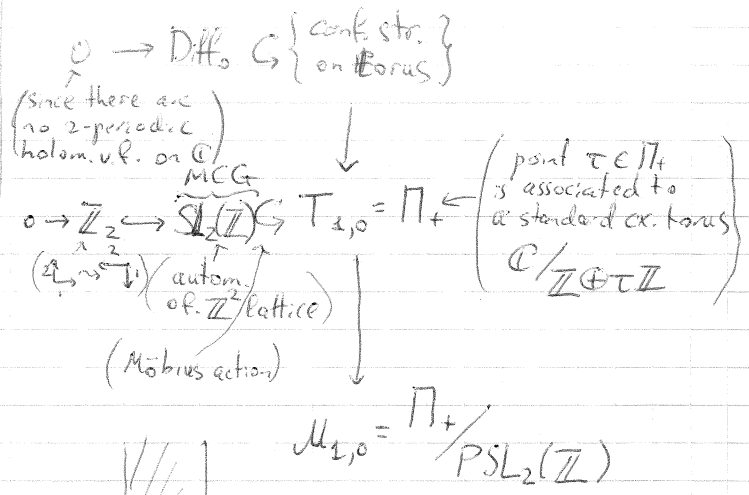 0 → Diff₀ ↻ {conf. str. on torus}
(since there are
no 2-periodic
holom. v.f. on ℂ)
MCG
0 → ℤ₂ ↪ SL₂(ℤ) ↻ T₁,₀ = Π₊ ← (point τ ∈ Π₊
is associated to
a standard cx. torus
ℂ/ℤ⊕τℤ)
(autom.
of ℤ² lattice)
(Möbius action)
M₁,₀ = Π₊/PSL₂(ℤ)